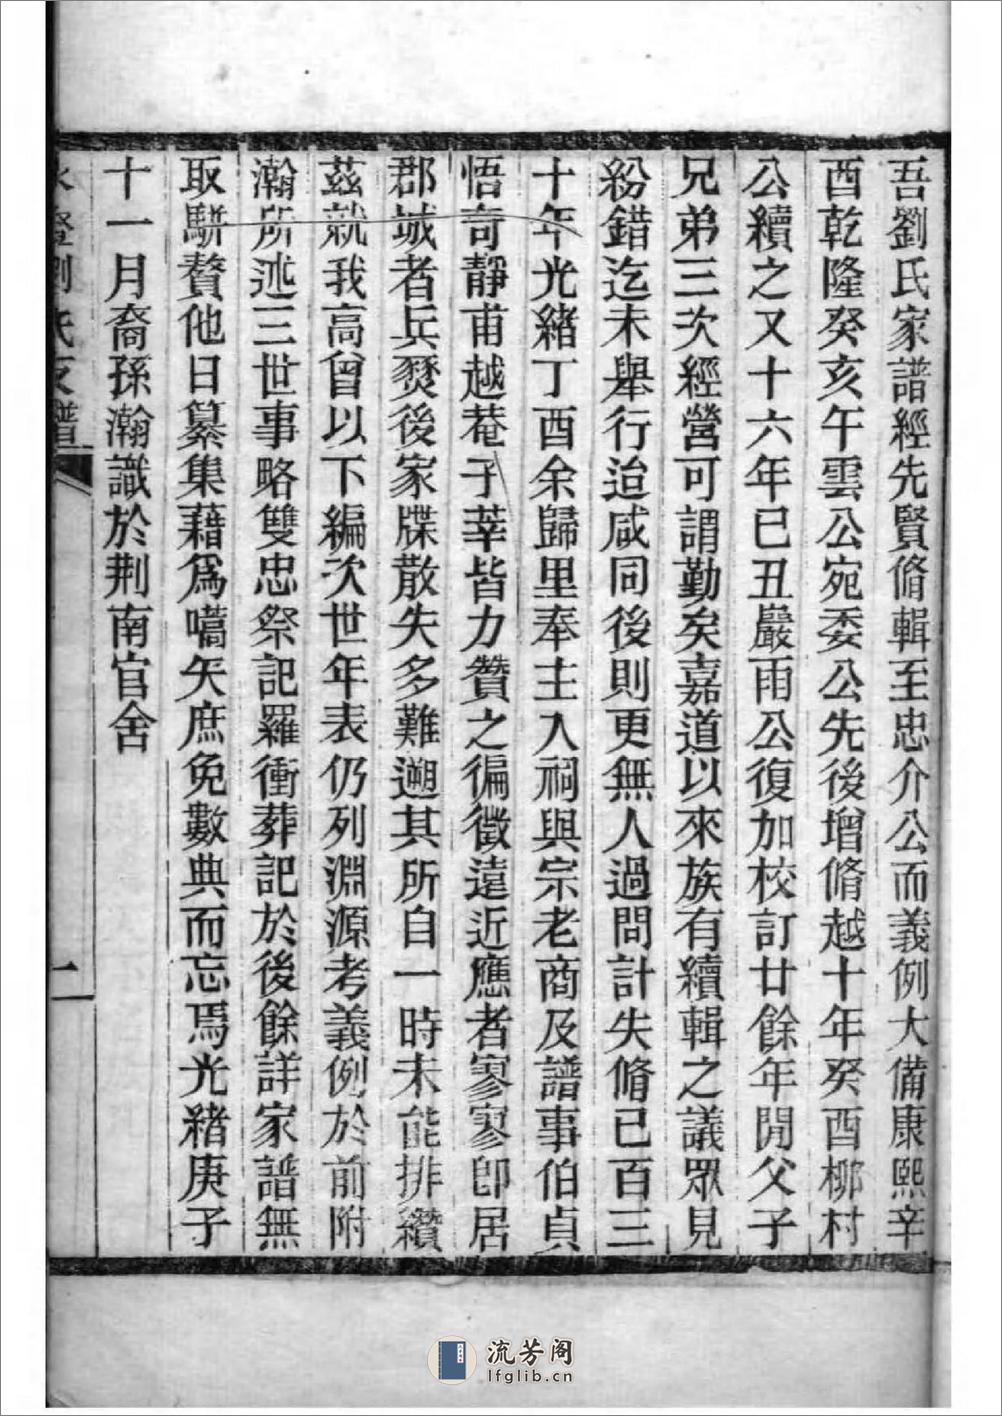 吾劉氏家譜經先賢脩輯至忠介公而義例大備康熙辛
酉乾隆癸亥午雲公宛委公先後增脩越十年癸酉柳村
公續之又十六年已丑嚴雨公復加校訂廿餘年閒父子
兄弟三次經營可謂勤矣嘉道以來族有續輯之議眾見
紛錯迄未舉行迨咸同後則更無人過問計失脩已百三
十年光緒丁酉余歸里奉主入祠與宗老商及譜事伯貞
悟奇靜甫越菴子莘皆力贊之徧徵遠近應者寥寥卽居
郡城者兵燹後家牒散失多難遡其所自一時未能排纘
茲就我高曾以下編次世年表仍列淵源考義例於前附
瀚所述三世事略雙忠祭記羅衝葬記於後餘詳家譜無
取駢贅他日纂集藉爲嚆矢庶免數典而忘焉光緒庚子
十一月裔孫瀚識於荆南官舍
劉氏支譜
二
流芳阁
lfglib.cn